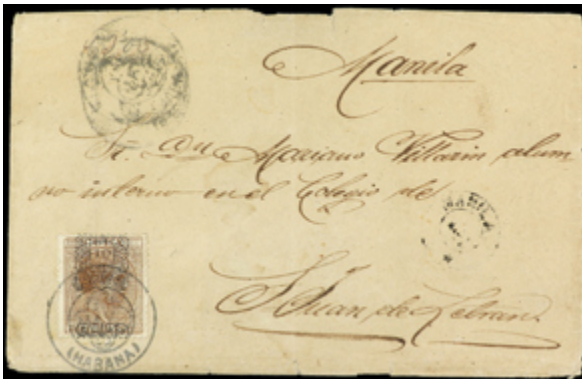 Manila
Sr. Don Mariano Villarin alum
no interno en el Colegio de
MANILA
S. Juan de Letran.
(HABANA)